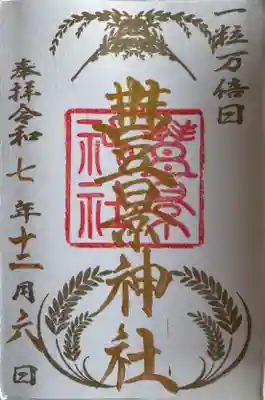 一粒万倍日
豊景神社
豊景神社
奉拝令和七年十二月六日